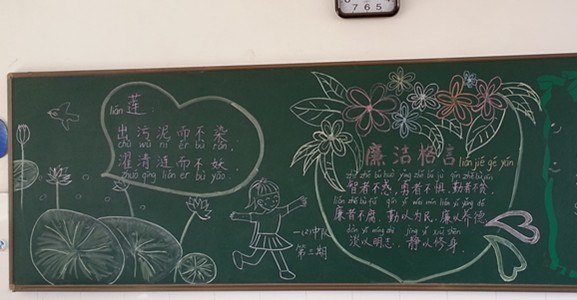 7 6 5
lián
莲:
出污泥而不染
chū wū ní ér bù rǎn,
濯清涟而不妖
zhuó qīng lián ér bù yāo.
廉洁格言 lián jié gé yán
zhì zhě bú huò yǒng zhě bú jù qín zhě bù pín
智者不惑,勇者不惧,勤者不贫,
lián zhě bù fǔ qín yǐ wéi mín lián yǐ yǎng dé
廉者不腐,勤以为民,廉以养德,
dàn yǐ míng zhì jìng yǐ xiū shēn
淡以明志,静以修身.
一(2)中队
第三期